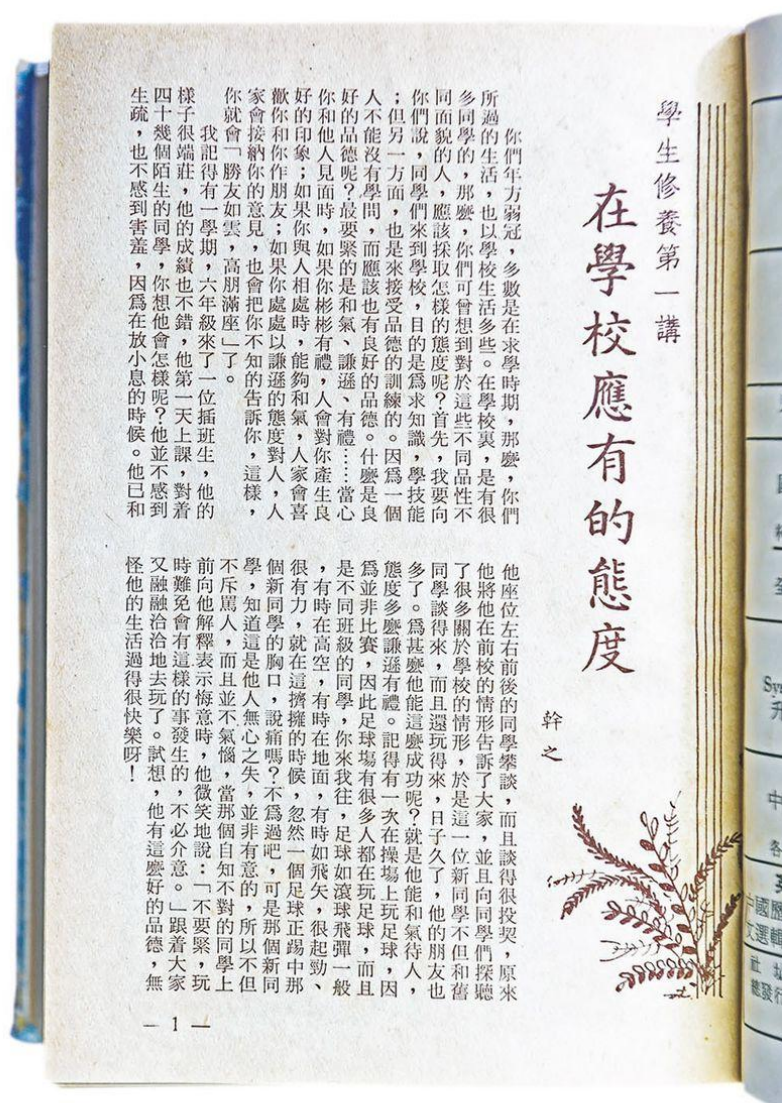 學生修養第一講
在學校應有的態度
幹之
你們年方弱冠，多數是在求學時期，那麼，你們
所過的生活，也以學校生活多些。在學校裏，是有很
多同學的，那麼，你們可曾想到對於這些不同品性不
同面貌的人，應該採取怎樣的態度呢？首先，我要向
你們說，同學們來到學校，目的是爲求知識，學技能
；但另一方面，也是來接受品德的訓練的。因爲一個
人不能沒有學問，而應該也有良好的品德。什麼是良
好的品德呢？最要緊的是和氣、謙遜、有禮……當心
你和他人見面時，如果你彬彬有禮，人會對你產生良
好的印象；如果你與人相處時，能夠和氣，人家會喜
歡你和你作朋友；如果你處處以謙遜的態度對人，人
家會接納你的意見，也會把你不知的告訴你，這樣，
你就會「勝友如雲，高朋滿座」了。
我記得有一學期，六年級來了一位插班生，他的
樣子很端莊，他的成績也不錯，他第一天上課，對着
四十幾個陌生的同學，你想他會怎樣呢？他並不感到
生疏，也不感到害羞，因爲在放小息的時候。他已和
他座位左右前後的同學攀談，而且談得很投契，原來
他將他在前校的情形告訴了大家，並且向同學們探聽
了很多關於學校的情形，於是這一位新同學不但和舊
同學談得來，而且還玩得來，日子久了，他的朋友也
多了。爲甚麼他能這麼成功呢？就是他能和氣待人，
態度多麼謙遜有禮。記得有一次在操塲上玩足球，因
爲並非比賽，因此足球塲有很多人都在玩足球，而且
是不同班級的同學，你來我往，足球如滾球飛彈一般
，有時在高空，有時在地面，有時如飛矢，很起勁、
很有力，就在這擠擁的時候，忽然一個足球正踢中那
個新同學的胸口，說痛嗎？不爲過吧，可是那個新同
學，知道這是他人無心之失，並非有意的，所以不但
不斥罵人，而且並不氣惱，當那個自知不對的同學上
前向他解釋表示悔意時，他微笑地說：「不要緊，玩
時難免會有這樣的事發生的，不必介意。」跟着大家
又融融洽洽地去玩了。試想，他有這麼好的品德，無
怪他的生活過得很快樂呀！
— 1 —
Sys
升
中
各
中國歷
文選輯
社址
總發行